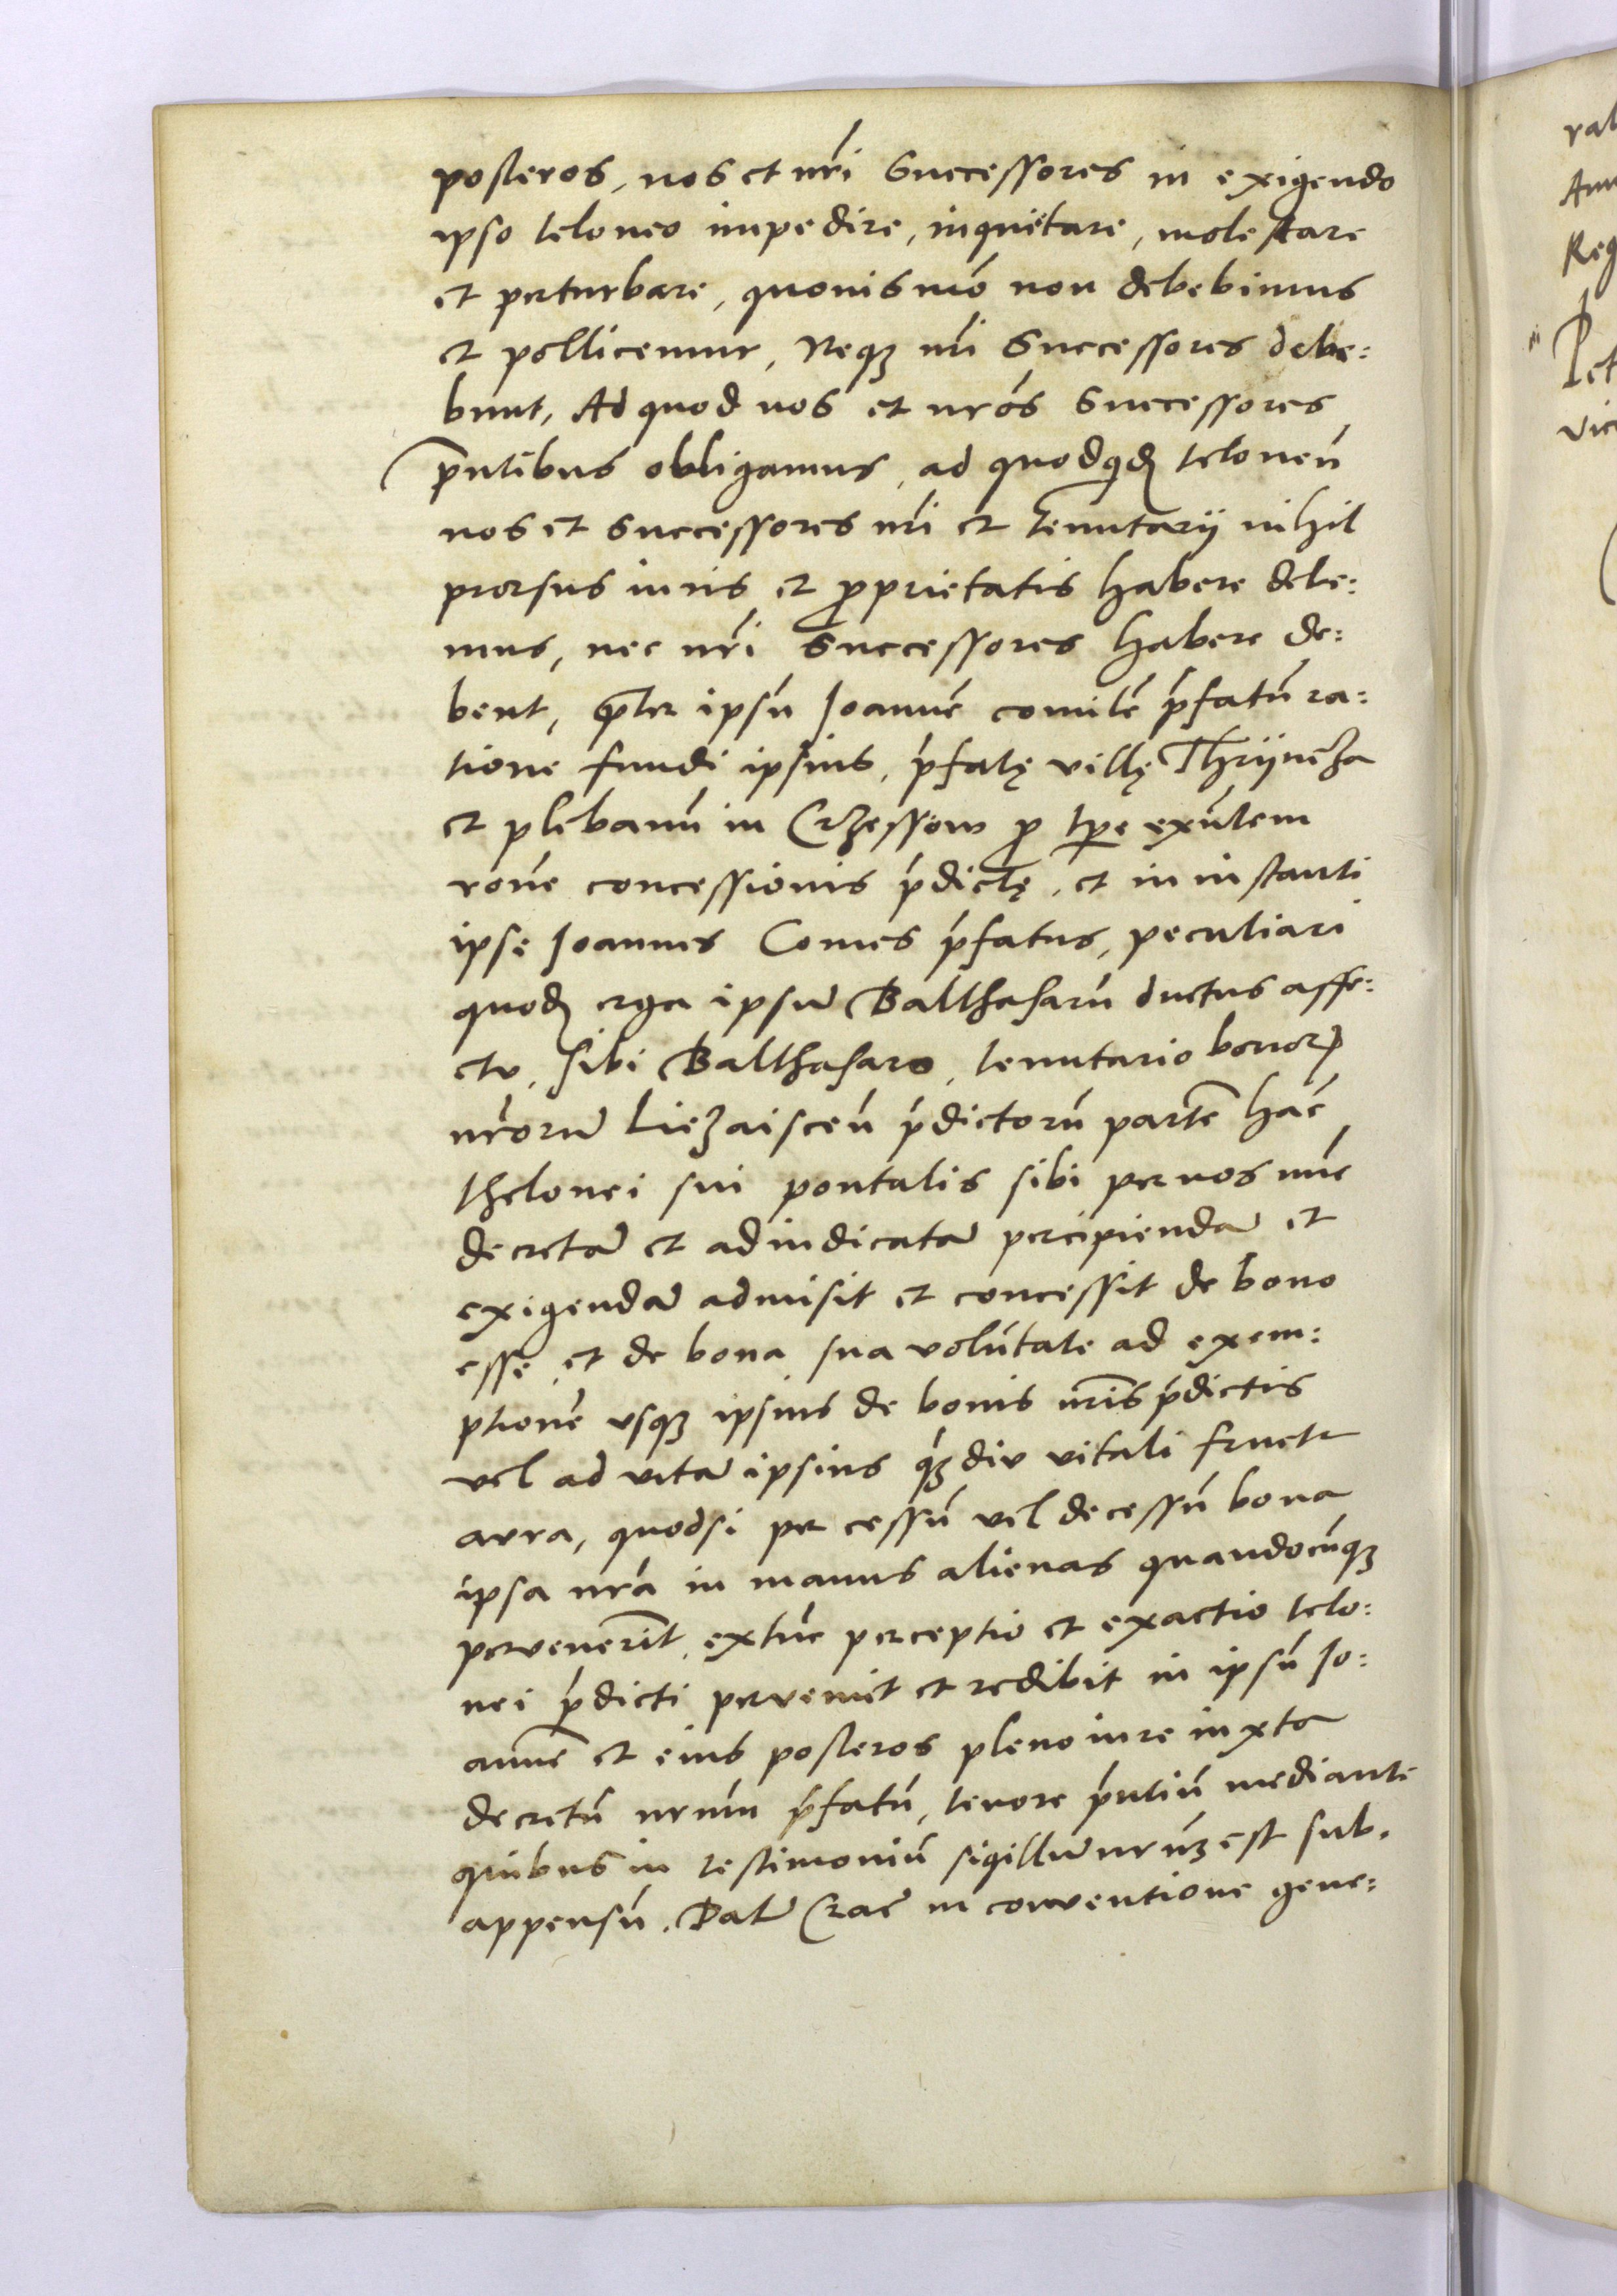 posteros, nos et nr̃i Successores in exigendo
ipso teloneo impedire, inquietare, molestare
et perturbare, quovis mõ non debebimus
et pollicemur, Neqꝫ nr̃i Successores debe:
bunt, Ad quod nos et nrõs Successores
pñtibus obligamus, ad quodqdẽ teloneũ
nos et Successores nr̃i et tenutarij nihil
prorsus iuris et ꝓprietatis habere debe:
mus, nec nr̃i Successores habere de:
bent, p̃ter ipsũ Joannẽ comitẽ p̃fatũ ra:
tione fundi ipsius, p̃fatę villę Thrijncza
et plebanũ in Crzessow ꝓ tp̃e exñtem
rõne concessionis p̃dictę, et in instanti
ipse Joannes Comes p̃fatus, peculiari
quodã erga ipsum̃ Balthasarũ ductus affe:
ctu, sibi Balthasaro, tenutario bonorꝝ
nrõrum̃ Liezaisceñ p̃dictorũ partẽ hãc
thelonei sui pontalis sibi per nos nũc
decretã et adiudicatã percipiendã et
exigendã admisit et concessit de bono
esse et de bona sua volũtate ad exem:
ptionẽ usqꝫ ipsius de bonis nr̃is p̃dictis
vel ad vitã ipsius qꝫdiu vitali fruetr
aura, quodsi per cessũ vel decessũ bona
ipsa nrã in manus alienas quandocũqꝫ
pervenerĩt, extũc perceptio et exactio telo:
nei p̃dicti perveniet et redibit in ipsũ Jo:
annẽ et eius posteros pleno iure iuxta
decretũ nrũm p̃fatũ, tenore p̃ntiũ mediante
quibus in testimoniũ sigillum̃ nrũꝫ est sub.
appensũ. Datũ Crac̃ in conventione gene: